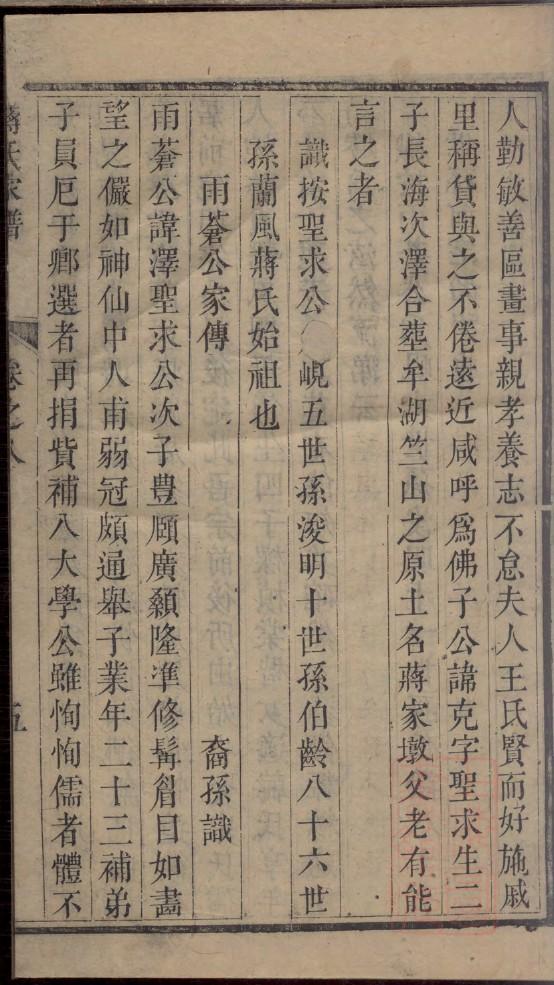 人勤敏善區畫事親孝養志不怠夫人王氏賢而好施戚
里稱貸與之不倦遠近咸呼爲佛子公諱克字聖求生二
子長海次澤合塟牟湖竺山之原土名蔣家墩父老有能
言之者
識按聖求公峴五世孫浚明十世孫伯齡八十六世
孫蘭風蔣氏始祖也
雨蒼公家傳　裔孫識
雨蒼公諱澤聖求公次子豊頤廣顙隆凖修髯眉目如畵
望之儼如神仙中人甫弱冠頗通舉子業年二十三補弟
子員厄于鄉選者再捐貲補入大學公雖恂恂儒者體不
蔣氏家譜　卷之八　五